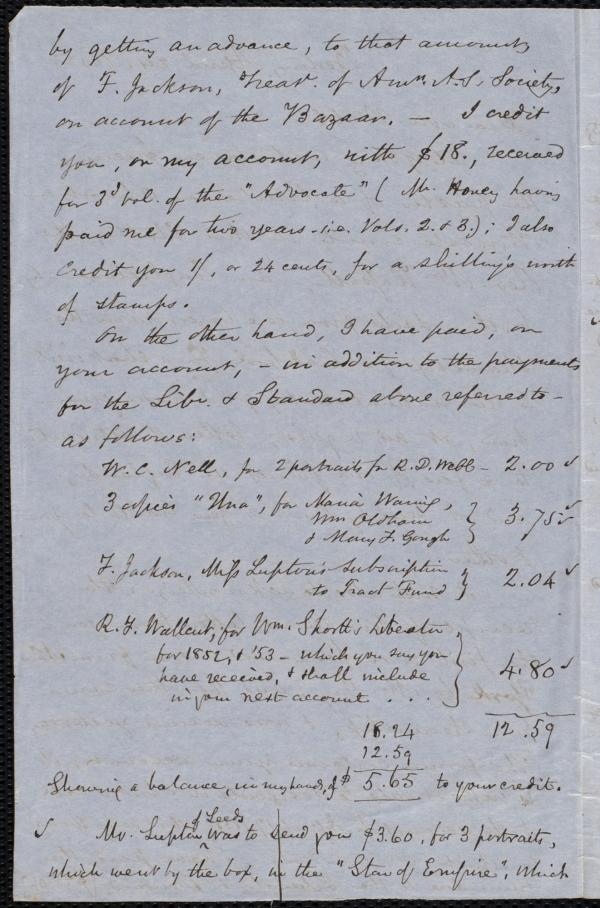 by getting an advance, to that amount,
of F. Jackson, Treasr. of Amn. A.S. Society,
on account of the Bazaar. — I credit
you, on my account, with $18., received
for 3d vol. of the "Advocate" (Mr. Hovey having
paid me for two years - i.e. Vols. 2. & 3.); I also
credit you 1/, or 24 cents, for a shilling's worth
of stamps.
On the other hand, I have paid, on
your account, — in addition to the payments
for the Libr. & Standard above referred to —
as follows:
W. C. Nell, for 2 portraits for R. D. Webb — 2.00 ✓
3 copies "Una", for Maria Waring,
Wm Oldham
& Mary F. Gough } 3.75 ✓
F. Jackson, Miss Lupton's subscription
to Tract Fund } 2.04 ✓
R. F. Wallcut, for Wm. Shortt's Liberator
for 1852, & '53 — which you say you
have received, & shall include
in your next account . . . } 4.80 ✓
18.24 12.59
12.59
Showing a balance, in my hand, of $ 5.65 to your credit.
✓ Mr. Lupton of Leeds was to send you $3.60, for 3 portraits,
which went by the box, in the "Star of Empire", which